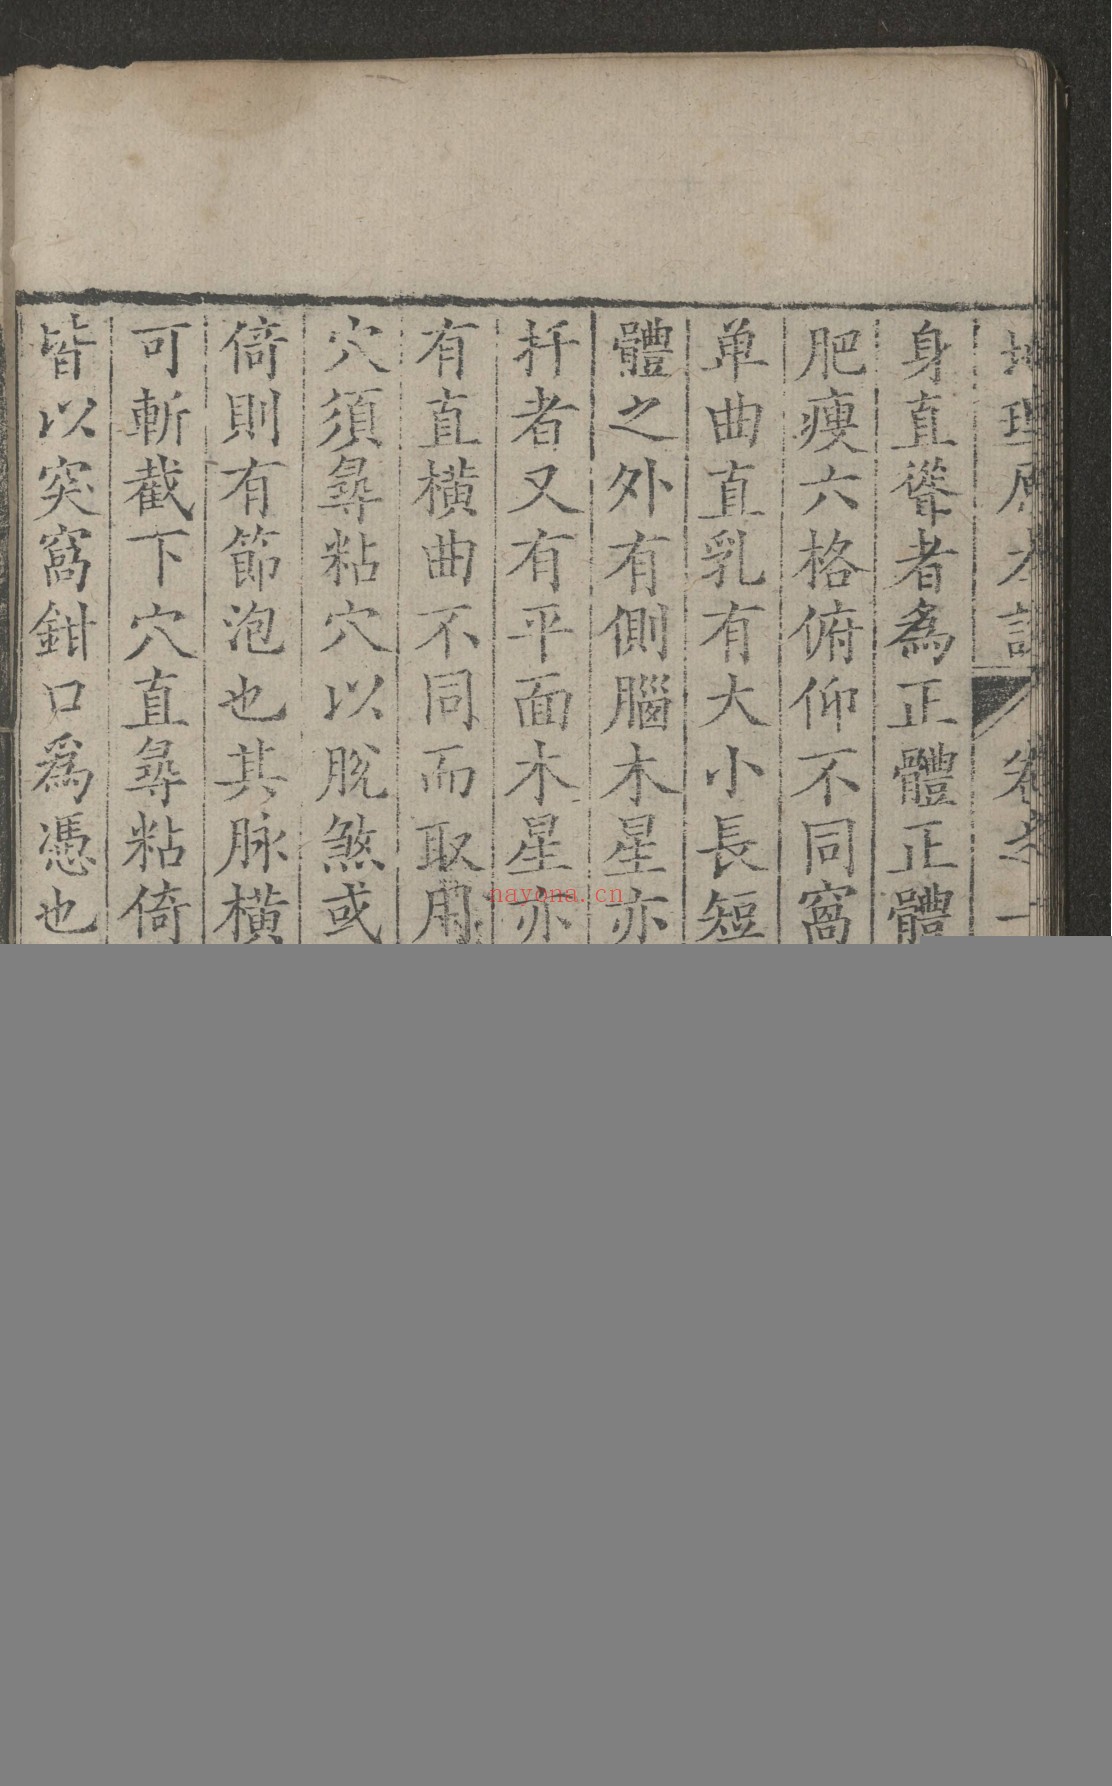 地理原本說 卷之一
身直聳者爲正體正體
肥瘦六格俯仰不同窩
单曲直乳有大小長短
體之外有側腦木星亦
扦者又有平面木星亦
有直橫曲不同而取用
穴須尋粘穴以脫煞或
倚則有節泡也其脉橫
可斬截下穴直尋粘倚
皆以突窩鉗口爲憑也
nayona.cn